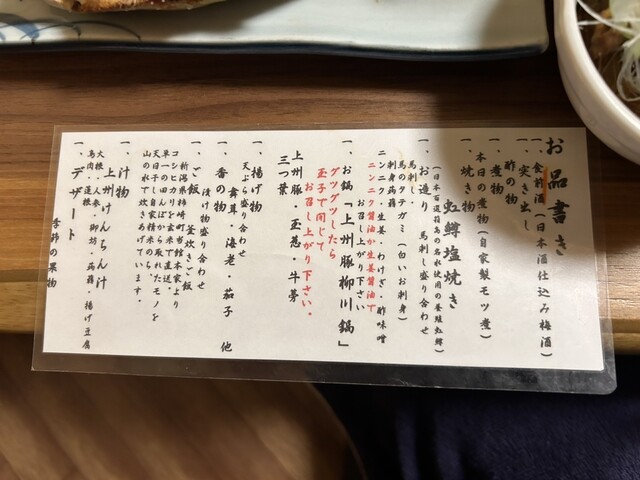 お品書き
一、食前酒(日本酒仕込み梅酒)
一、突き出し
酢の物
一、煮物
本日の煮物(自家製モツ煮)
一、焼き物
虹鱒塩焼き
(日本百選箱島の名水使用の養殖虹鱒)
一、お造り 馬刺し盛り合わせ
馬刺し、
馬のタテガミ(白いお刺身)
刺身蒟蒻
ニンニク・生姜・わけぎ・酢味噌
ニンニク醤油か生姜醤油で
お召し上がり下さい
一、お鍋「上州豚柳川鍋」
グツグツしたら
玉子で閉じて
お召し上がり下さい。
上州豚・玉葱・牛蒡
三つ葉
一、揚げ物
天ぷら盛り合わせ
舞茸・海老・茄子 他
一、香の物
漬け物盛り合わせ
一、ご飯 釜炊きご飯
新潟県柿崎町
コシヒカリを玄米で直送。
単一の田んぼから取れたモノを
天日干し自家精米のち、
山の水で炊きあげています。
一、汁物
上州けんちん汁
大根・人参・御坊・蒟蒻・揚げ豆腐
鳥肉・蓮根
一、デザート
季節の果物